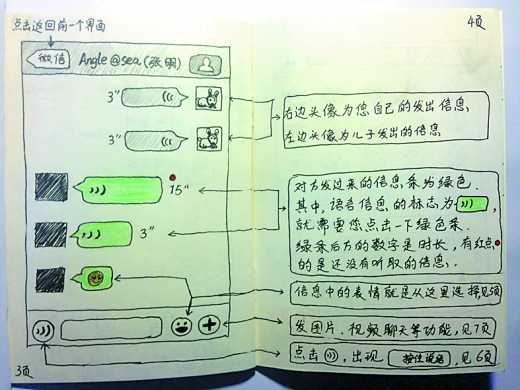 点击返回前一个界面
微信
Angle@sea(张明)
3"
3"
15"
3"
3页
4页
右边头像为您自己的发出信息
左边头像为儿子发出的信息
对方发过来的信息条为绿色.
其中,语音信息的标志为
就需要您点击一下绿色条.
绿条后方的数字是时长,有红点
的是还没有听取的信息.
信息中的表情就是从这里选择见
发图片、视频聊天等功能,见7页
点击 ,出现 按住说话 ,见6页